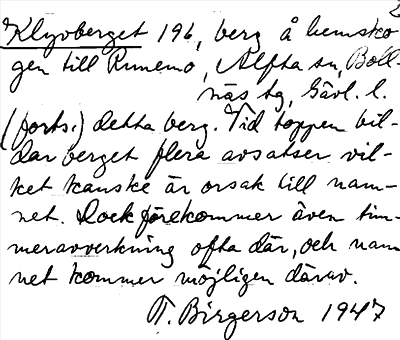 2
Klyvberget 196, berg å hemsko-
gen till Runemo, Alfta sn, Boll-
näs tg, Gävl. l.
(forts.) detta berg. Vid toppen bil-
dar berget flera avsatser vil-
ket kanske är orsak till nam-
net. Dock förekommer även tim-
meravverkning ofta där, och nam
net kommer möjligen därav.
T. Birgerson 1947